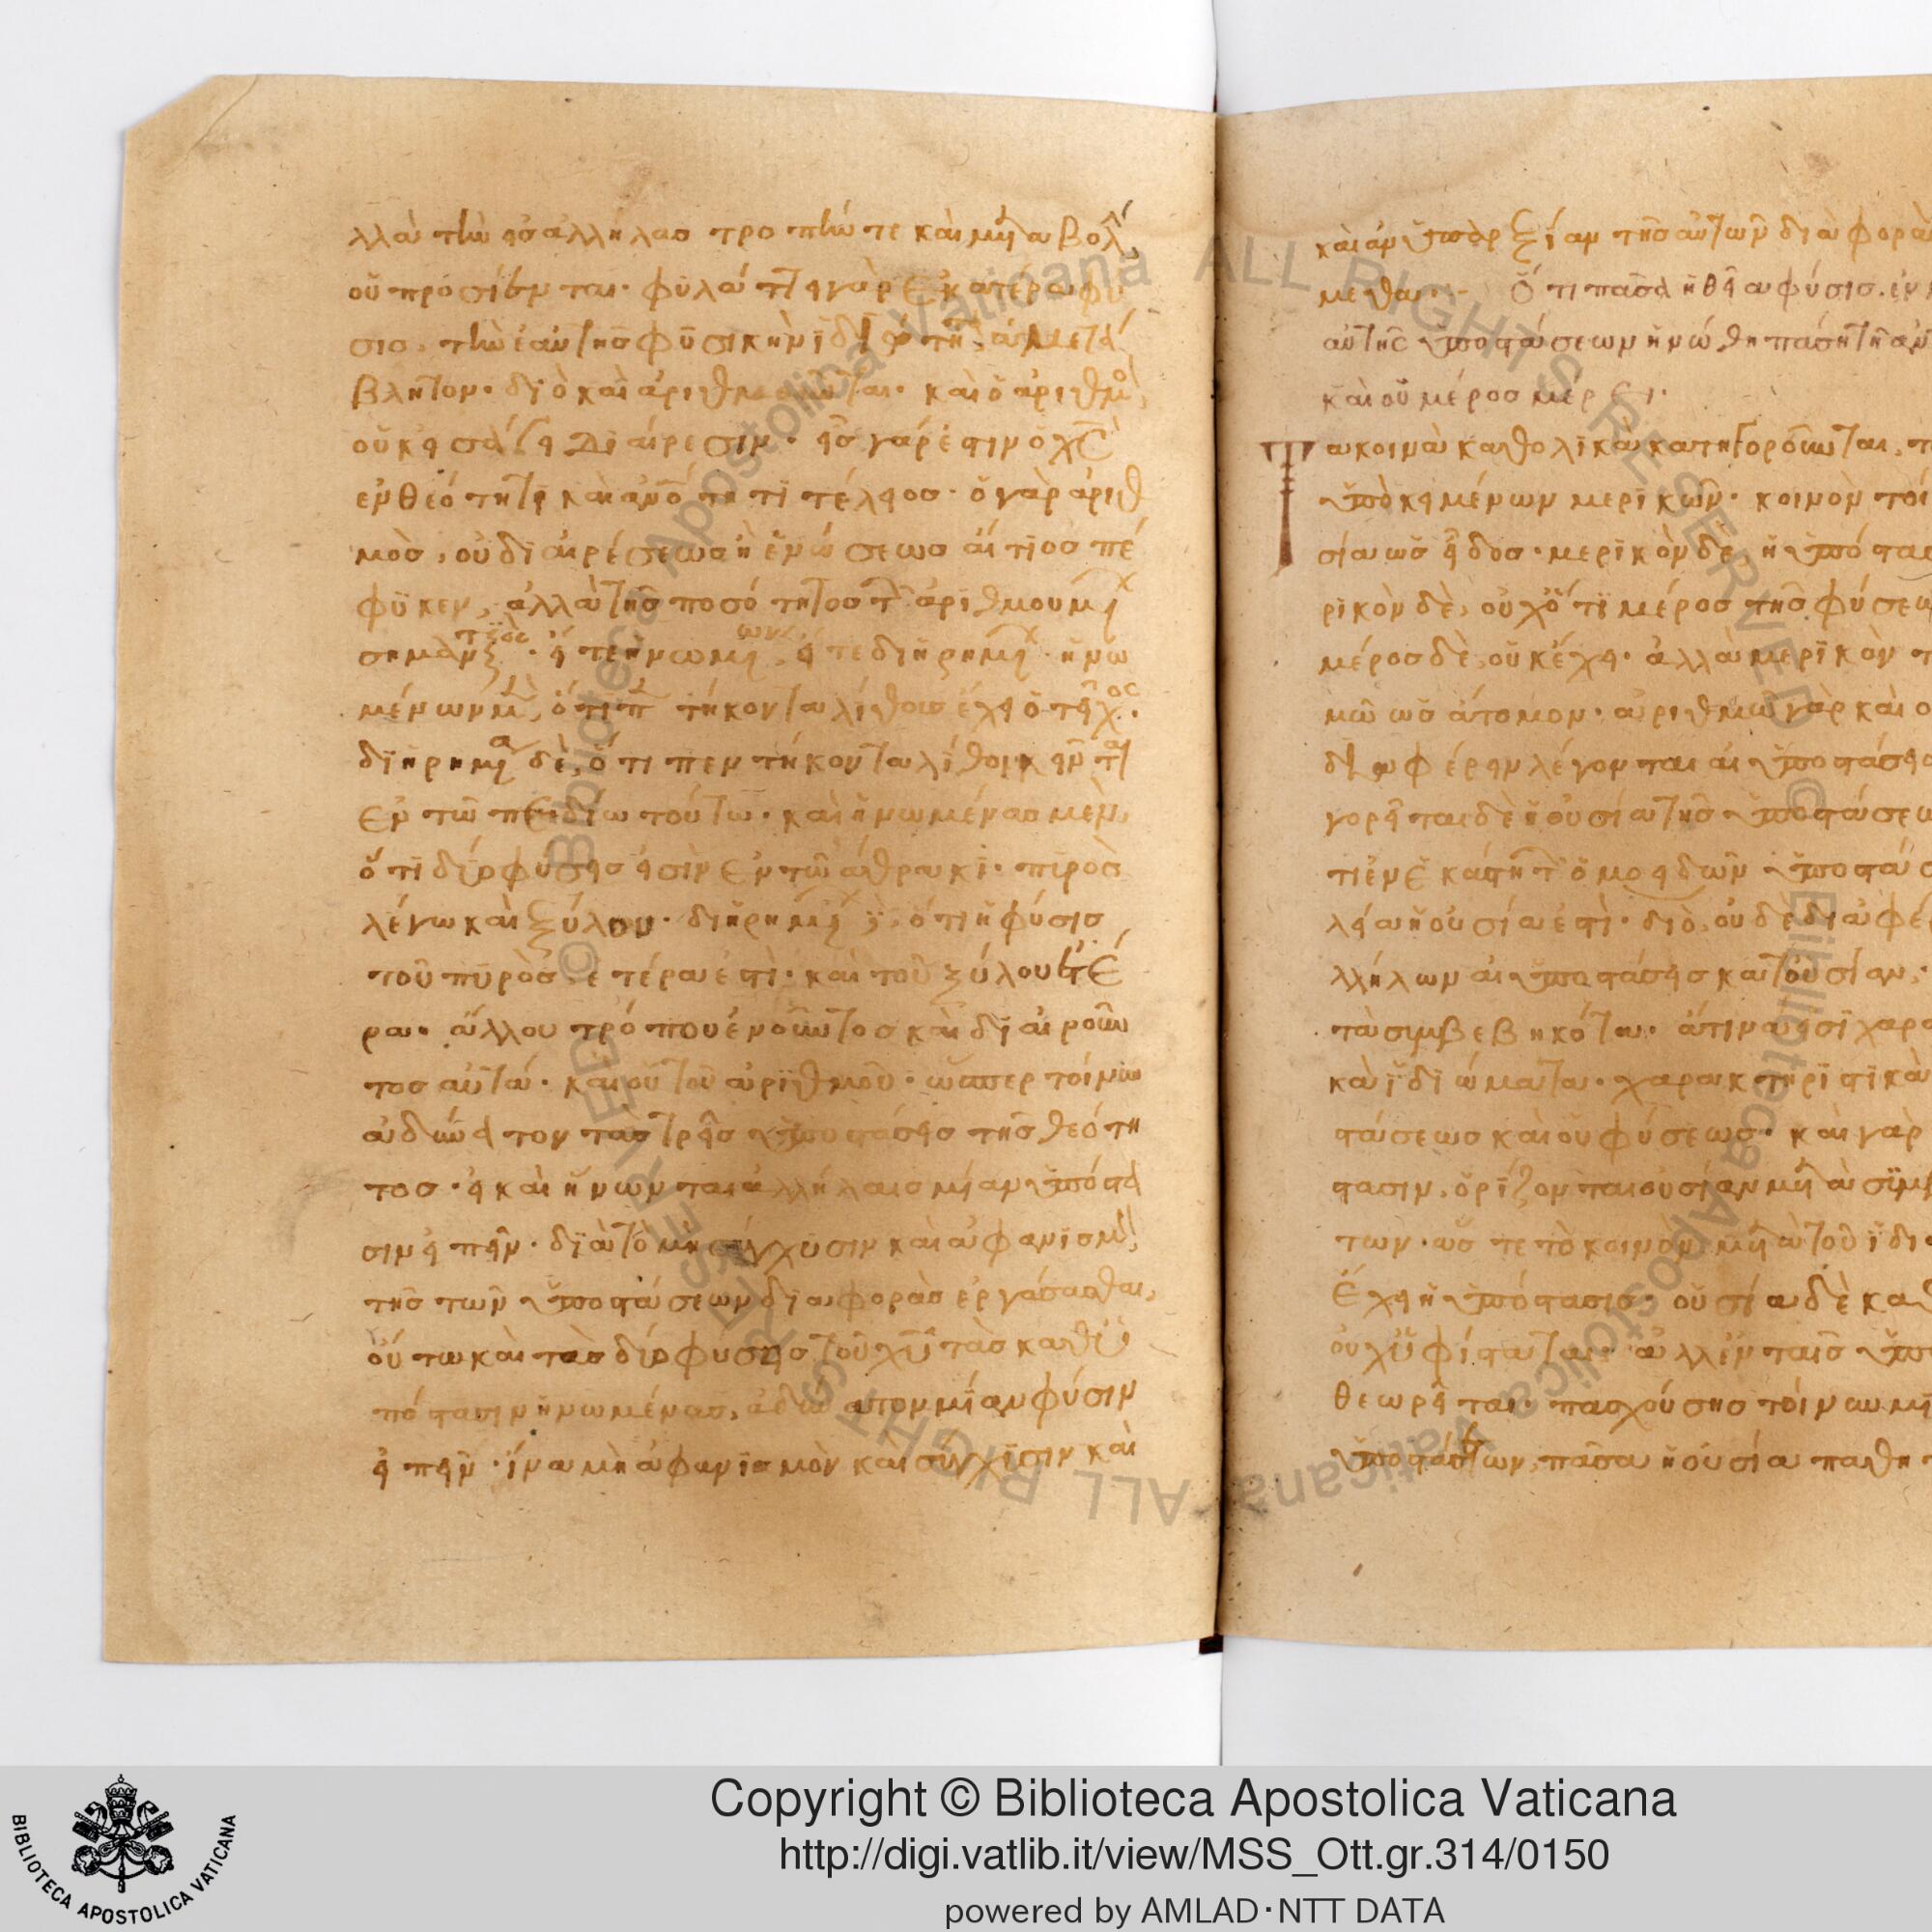 λλὰ τὴν εἰς ἀλλήλας τροπήν τε καὶ μεταβολὴν
οὐ προσίενται· φυλάττει γὰρ ἑκατέρα φύ
σις, τὴν ἑαυτῆς φυσικὴν ἰδιότητα ἀμετά
βλητον· διὸ καὶ ἀριθμοῦνται· καὶ ὁ ἀριθμὸς
οὐκ εἰσάγει διαίρεσιν· εἷς γάρ ἐστιν ὁ χς
ἐν θεότητι καὶ ἀνότητι τέλειος· ὁ γὰρ ἀριθ
μὸς, οὐ διαιρέσεως ἢ ἑνώσεως αἴτιος πέ
φυκεν, ἀλλὰ τῆς ποσότητος τῶν ἀριθμουμένων
σημαντικός· εἴτε ἡνωμένων, εἴτε διῃρημένων· ἡνω
μένων μὲν, ὅτι πεντήκοντα λίθους ἔχει ὁ τεῖχος·
διῃρημένα δὲ, ὅτι πεντήκοντα λίθοι κεῖνται
ἐν τῷ πεδίῳ τούτῳ· καὶ ἡνωμένας μὲν,
ὅτι δύο φύσεις εἰσὶν ἐν τῷ ἄνθρακι· πυρὸς
λέγω καὶ ξύλου· διῃρημένων δὲ, ὅτι ἡ φύσις
τοῦ πυρὸς ἑτέρα ἐστὶ· καὶ τοῦ ξύλου ἑτέ
ρα· ἄλλου τρόπου ἑνοῦντος καὶ διαιροῦν
τος αὐτά· καὶ οὐ τοῦ ἀριθμοῦ· ὥσπερ τοίνυν
ἀδύνατον τὰς τρεῖς ὑποστάσεις τῆς θεότη
τος· εἰ καὶ ἥνωνται ἀλλήλαις μίαν ὑπόστα
σιν εἰπεῖν· διὰ τὸ μὴ σύγχυσιν καὶ ἀφανισμὸν
τῆς τῶν ὑποστάσεων διαφορᾶς ἐργάσασθαι,
οὕτω καὶ τὰς δύο φύσεις τοῦ χῦ τὰς καθ' ὑ
πόστασιν ἡνωμένας, ἀδύνατον μίαν φύσιν
εἰπεῖν· ἵνα μὴ ἀφανισμὸν καὶ σύγχυσιν καὶ
καὶ ἀνυπαρξίαν τῆς αὐτῶν διαφορᾶ
μεθα·- Ὅτι πᾶσα ἡ θεία φύσις ἐν
αὐτῆς ὑποστάσεων ἡνώθη πάσῃ τῇ ἀν
καὶ οὐ μέρος μέρει·
Τὰ κοινὰ καθολικὰ κατηγοροῦνται, τ
ὑποκειμένων μερικῶν· κοινὸν τοί
σία ὡς εἶδος· μερικὸν δὲ, ἡ ὑπόστασ
ρικὸν δὲ, οὐχ ὅτι μέρος τῆς φύσεω
μέρος δὲ, οὐκ ἔχει· ἀλλὰ μερικὸν τ
μῷ ὡς ἄτομον· ἀριθμῷ γὰρ καὶ ο
διαφέρειν λέγονται αἱ ὑποστάσεις
γορεῖται δὲ ἡ οὐσία τῆς ὑποστάσεω
τι ἐν ἑκάστῃ τῶν ὁμοειδῶν ὑποστάσ
λεία ἡ οὐσία ἐστὶ· διὸ, οὐδὲ διαφέ
λλήλων αἱ ὑποστάσεις κατ' οὐσίαν,
τὰ συμβεβηκότα· ἅτινά εἰσι χαρα
κὰ ἰδιώματα· χαρακτηριστικὰ
στάσεως καὶ οὐ φύσεως· καὶ γὰρ
στασιν, ὁρίζονται οὐσίαν μετὰ συμβ
των· ὥστε τὸ κοινὸν, μετὰ τοῦ ἰδι
ἔχει ἡ ὑπόστασις· οὐσία δὲ κα
οὐχ ὑφίσταται· ἀλλ' ἐν ταῖς ὑπο
θεωρεῖται· πασχούσης τοίνυν μι
ὑποστάσεων, πᾶσα ἡ οὐσία παθητ
Copyright © Biblioteca Apostolica Vaticana
http://digi.vatlib.it/view/MSS_Ott.gr.314/0150
powered by AMLAD·NTT DATA
BIBLIOTECA APOSTOLICA VATICANA